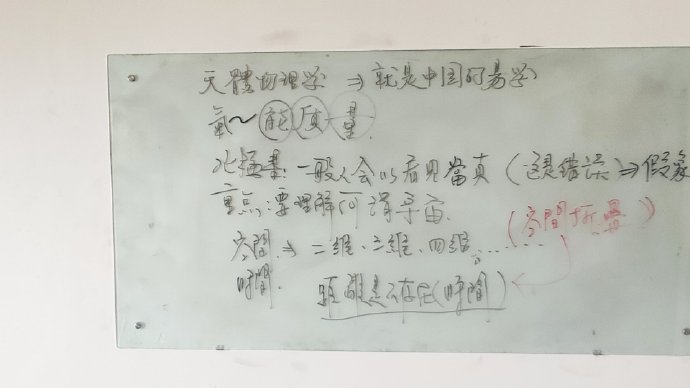 天體物理学 ⇒ 就是中国的易学
氣~能 質 量
北極星: 一般人会以看見當真 (這是错误⇒假象
重点:要理解何謂宇宙.
空間. ⇒ 二維、三維、四維。...... (空間折疊)
時間. 距離是不存在(時間)